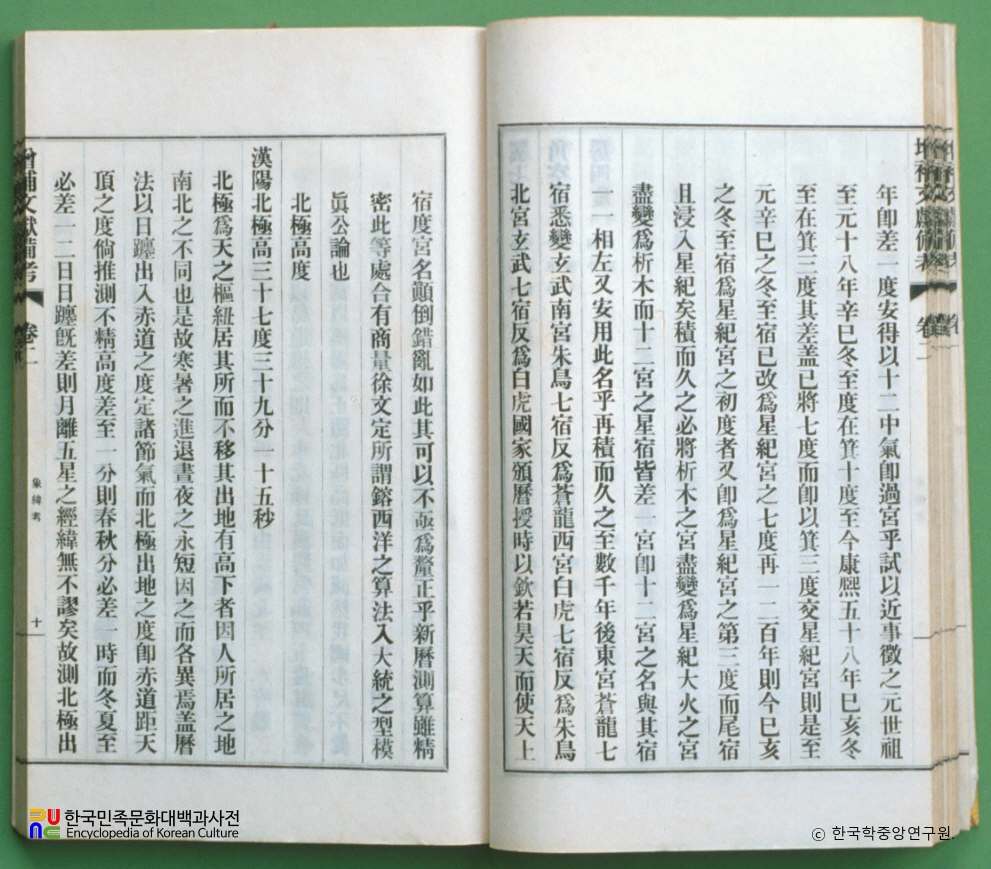 年卽差一度安得以十二中氣卽過宮乎試以近事徵之元世祖
至元十八年辛巳冬至度在箕十度至今康熙五十八年巳亥冬
至在箕三度其差盖已將七度而卽以箕三度交星紀宮則是至
元辛巳之冬至宿已改爲星紀宮之七度再一二百年則今巳亥
之冬至宿爲星紀宮之初度者又卽爲星紀宮之第三度而尾宿
且浸入星紀矣積而久之必將析木之宮盡變爲星紀大火之宮
盡變爲析木而十二宮之星宿皆差一宮卽十二宮之名與其宿
一一相左又安用此名乎再積而久之至數千年後東宮蒼龍七
宿悉變玄武南宮朱鳥七宿反爲蒼龍西宮白虎七宿反爲朱鳥
北宮玄武七宿反爲白虎國家頒曆授時以欽若昊天而使天上
宿度宮名顚倒錯亂如此其可以不亟爲釐正乎新曆測算雖精
密此等處合有商量徐文定所謂鎔西洋之算法入大統之型模
眞公論也
北極高度
漢陽北極高三十七度三十九分一十五秒
北極爲天之樞紐居其所而不移其出地有高下者因人所居之地
南北之不同也是故寒暑之進退晝夜之永短因之而各異焉盖曆
法以日躔出入赤道之度定諸節氣而北極出地之度卽赤道距天
頂之度倘推測不精高度差至一分則春秋分必差一時而冬夏至
必差一二日日躔旣差則月離五星之經緯無不謬矣故測北極出
增補文獻備考
卷二
象緯考
十
한국민족문화대백과사전
Encyclopedia of Korean Culture
ⓒ 한국학중앙연구원